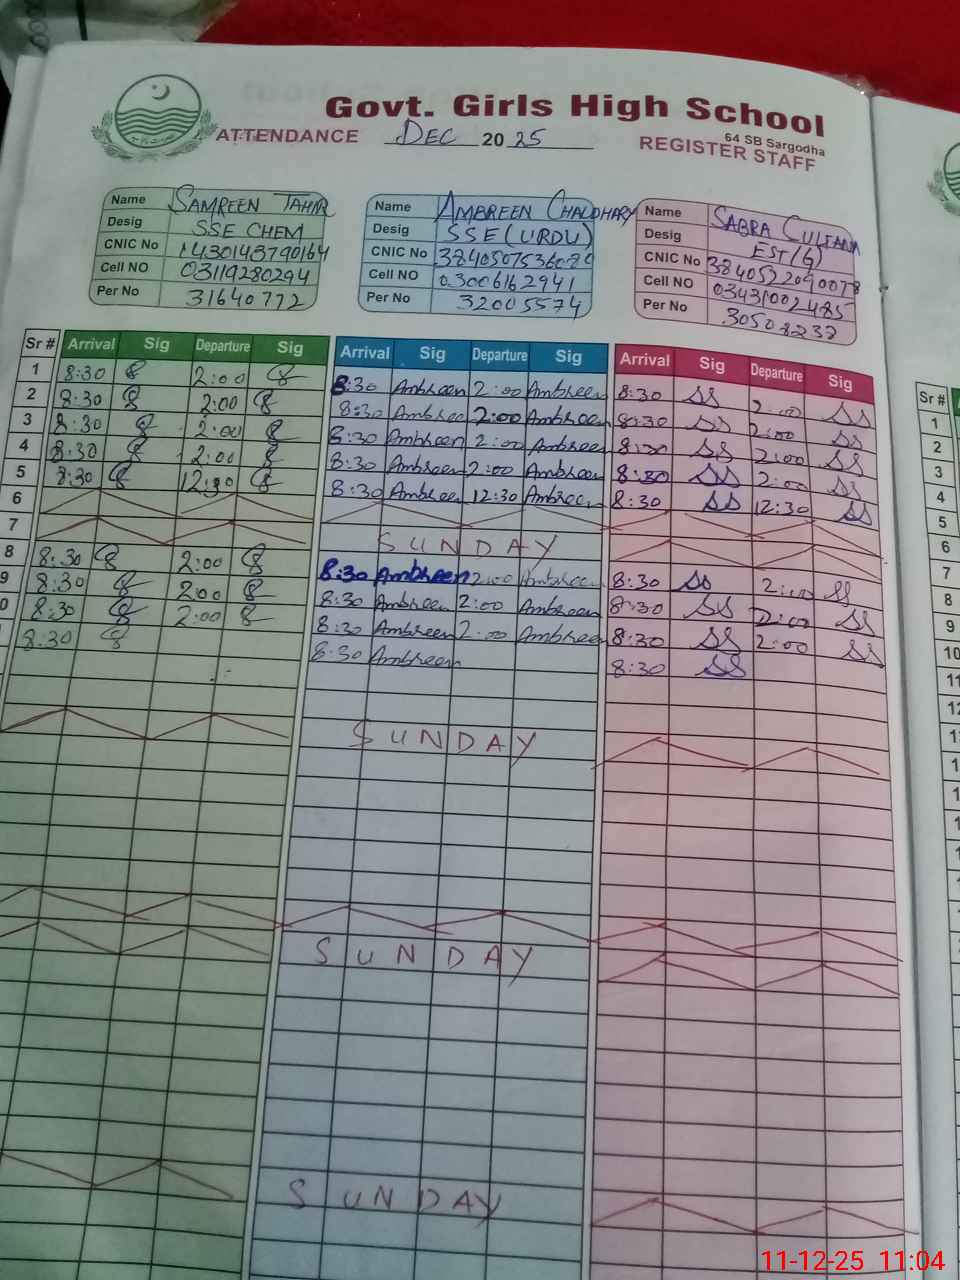 Govt. Girls High School
64 SB Sargodha
ATTENDANCE DEC 2025 REGISTER STAFF
Name SAMREEN TAHIR
Desig SSE CHEM
CNIC No
Cell NO 03119280294
Per No 31640772
Name AMBREEN CHAUDHARY
Desig SSE (URDU)
CNIC No
Cell NO 03006162941
Per No 32005574
Name SABRA SULTANA
Desig EST(G)
CNIC No
Cell NO 03431002485
Per No 30508238
Sr # Arrival Sig Departure Sig Arrival Sig Departure Sig Arrival Sig Departure Sig Sr #
1 8:30 2:00 8:30 Ambreen 2:00 Ambreen 8:30 SS 2:00 SS 1
2 8:30 2:00 8:30 Ambreen 2:00 Ambreen 8:30 SS 2:00 SS 2
3 8:30 2:00 8:30 Ambreen 2:00 Ambreen 8:30 SS 2:00 SS 3
4 8:30 2:00 8:30 Ambreen 2:00 Ambreen 8:30 SS 2:00 SS 4
5 8:30 12:30 8:30 Ambreen 12:30 Ambreen 8:30 SS 12:30 SS 5
6 6
7 SUNDAY 7
8 8:30 2:00 8:30 Ambreen 2:00 Ambreen 8:30 SS 2:00 SS 8
9 8:30 2:00 8:30 Ambreen 2:00 Ambreen 8:30 SS 2:00 SS 9
0 8:30 2:00 8:30 Ambreen 2:00 Ambreen 8:30 SS 2:00 SS 10
8:30 8:30 Ambreen 8:30 SS 11
12
SUNDAY
SUNDAY
SUNDAY
11-12-25 11:04